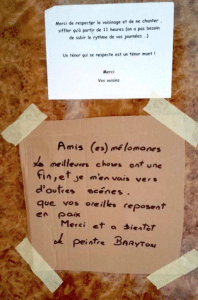 Merci de respecter le voisinage et de ne chanter,
siffler qu'à partir de 11 heures (on a pas besoin
de subir le rythme de vos journées .)
Un ténor qui se respecte est un ténor muet !
Merci
Vos voisins
Amis (es) mélomanes
Les meilleures choses ont une
Fin, et je m'en vais vers
d'autres scénes.
que vos oreilles reposent
en paix
Merci et a bientot
Le peintre BARYTON